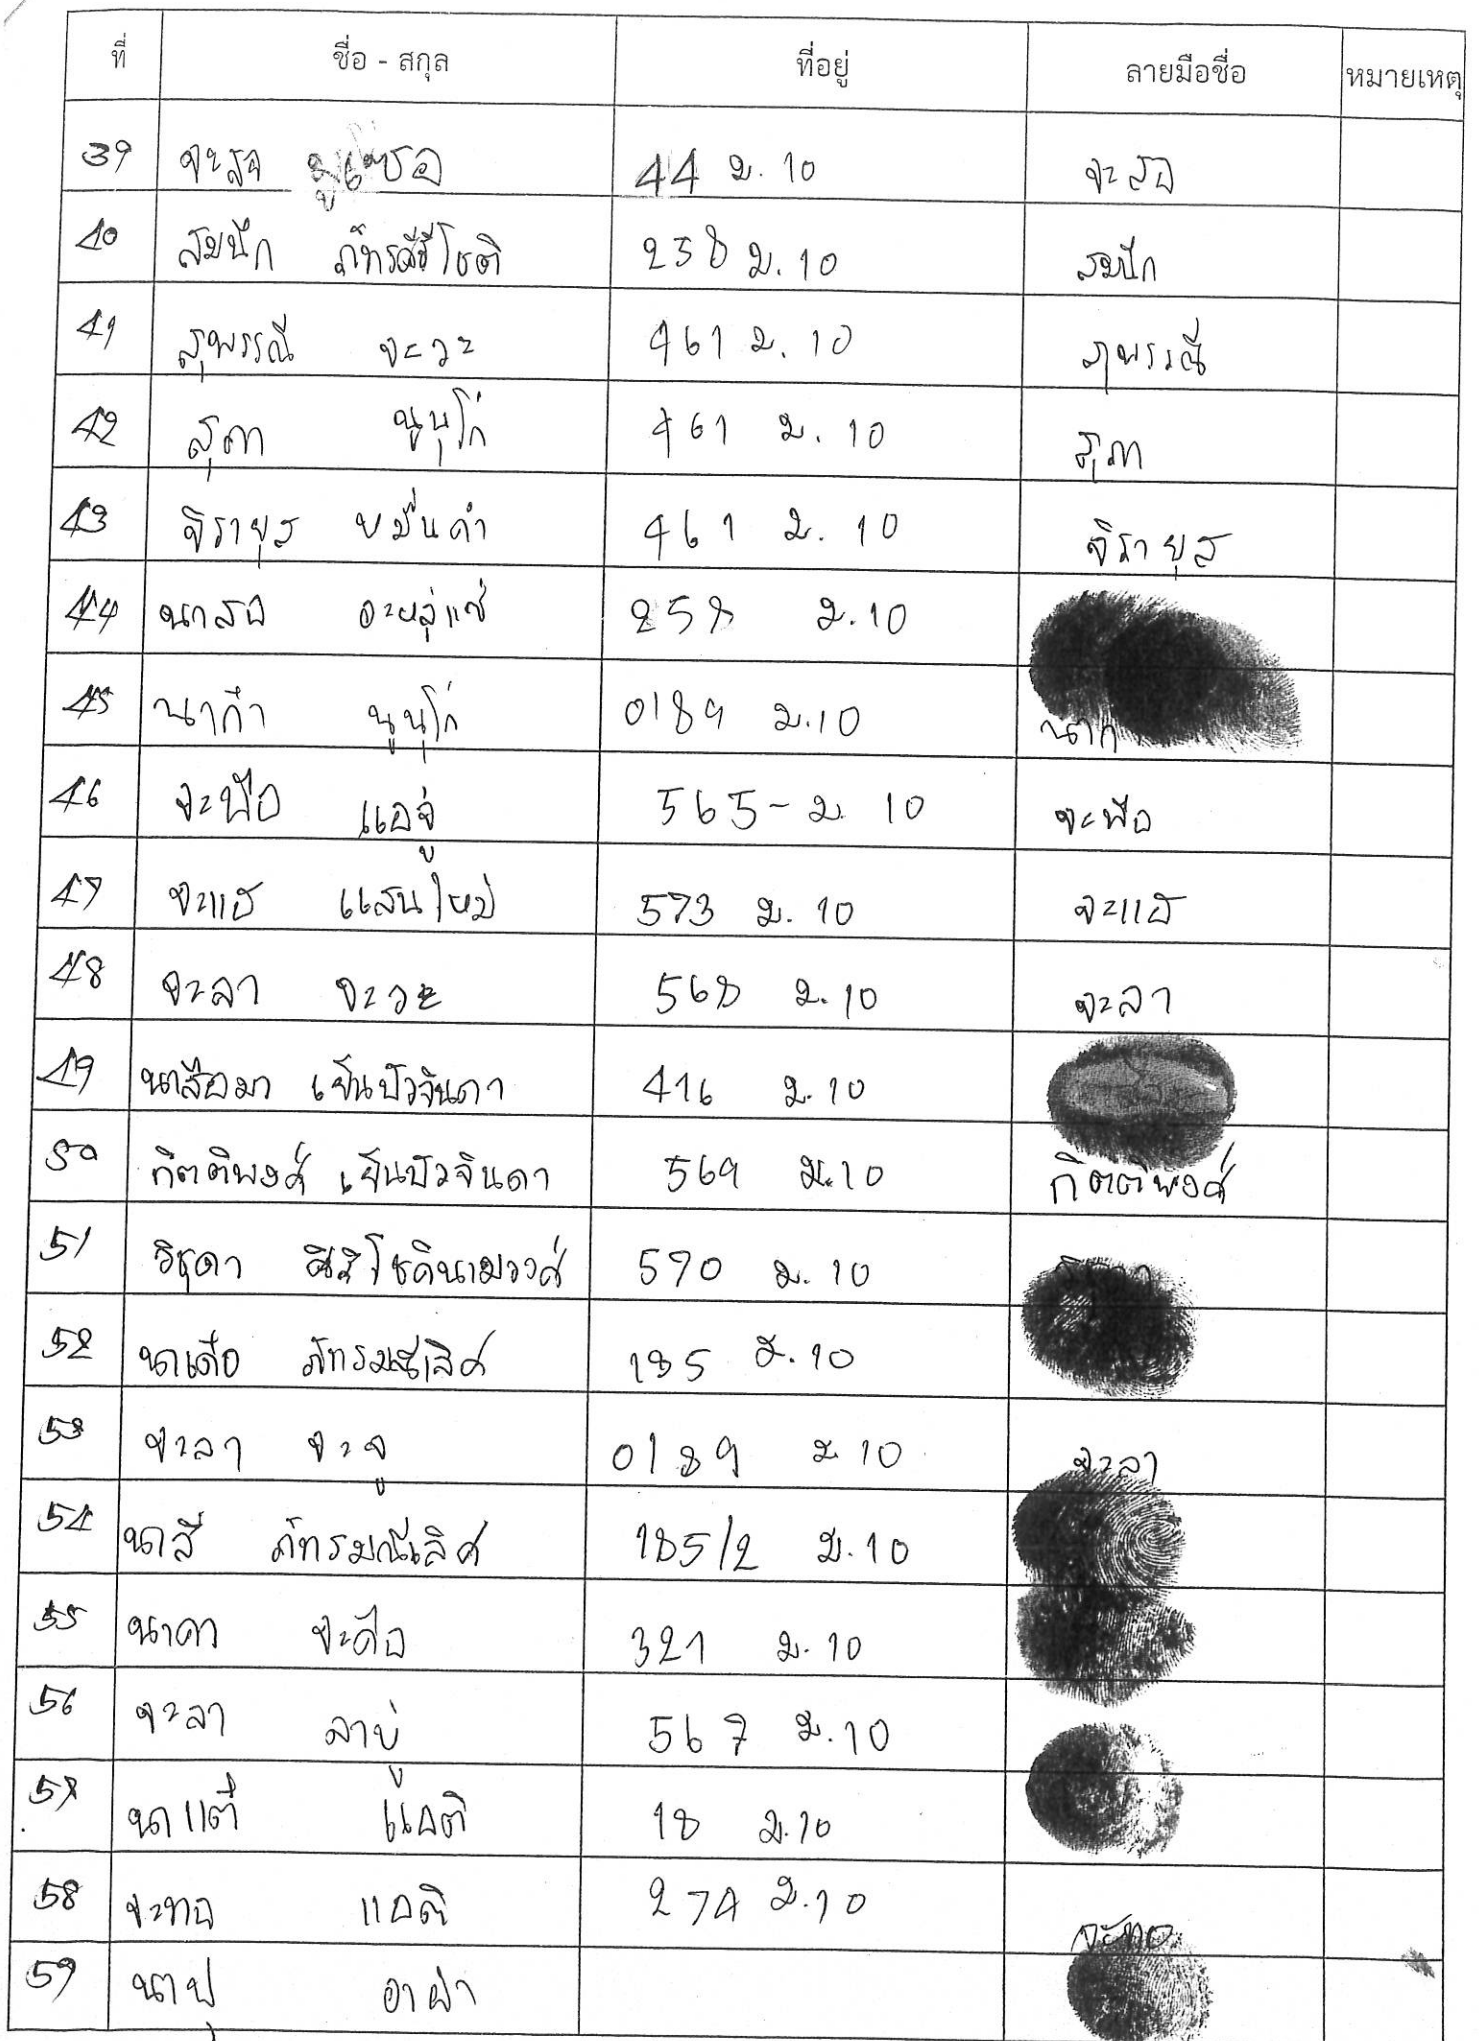 ที่ ชื่อ - สกุล ที่อยู่ ลายมือชื่อ หมายเหตุ
39 จะสอ มูเซอ 44 ม. 10 จะสอ
40 สมนึก 258 ม. 10 สมนึก
41 สุพรรณี จะวะ 461 ม. 10 สุพรรณี
42 สุดา นูนุโก่ 461 ม. 10 สุดา
43 จิรายุส หมื่นคำ 461 ม. 10 จิรายุส
44 นาสอ 258 ม.10
45 นากำ นูนุโก่ 0189 ม.10
46 จะพือ แอจู่ 565 - ม. 10 จะพือ
47 จะแฮ แสนใหม่ 573 ม. 10 จะแฮ
48 จะลา จะวะ 568 ม. 10 จะลา
49 นาสือมา เย็นบัวจินดา 416 ม. 10
50 กิตติพงศ์ เย็นบัวจินดา 569 ม.10 กิตติพงศ์
51 วิชุดา 570 ม. 10
52 185 ม. 10
53 จะลา จะจู 0189 ม 10 จะลา
54 นาสี ภัทรมณีเลิศ 185/2 ม.10
55 นาคา จะคือ 321 ม. 10
56 จะลา ลาบู่ 567 ม.10
57 นาแต๋ แอติ 18 ม.10
58 จะทอ แอติ 274 ม.10 จะทอ
59 นาปุ อาผ่า